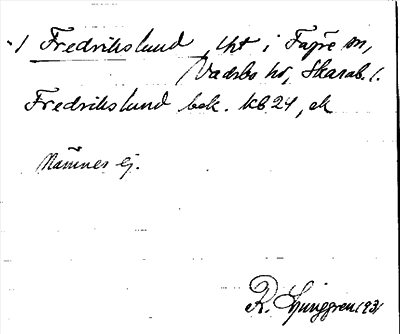 1 Fredrikslund, tht i Fägre sn,
Vadsbo hd, Skarab. l.
Fredrikslund bek. kb 24, ek
Nämnes ej.
R. Ljunggren 1931